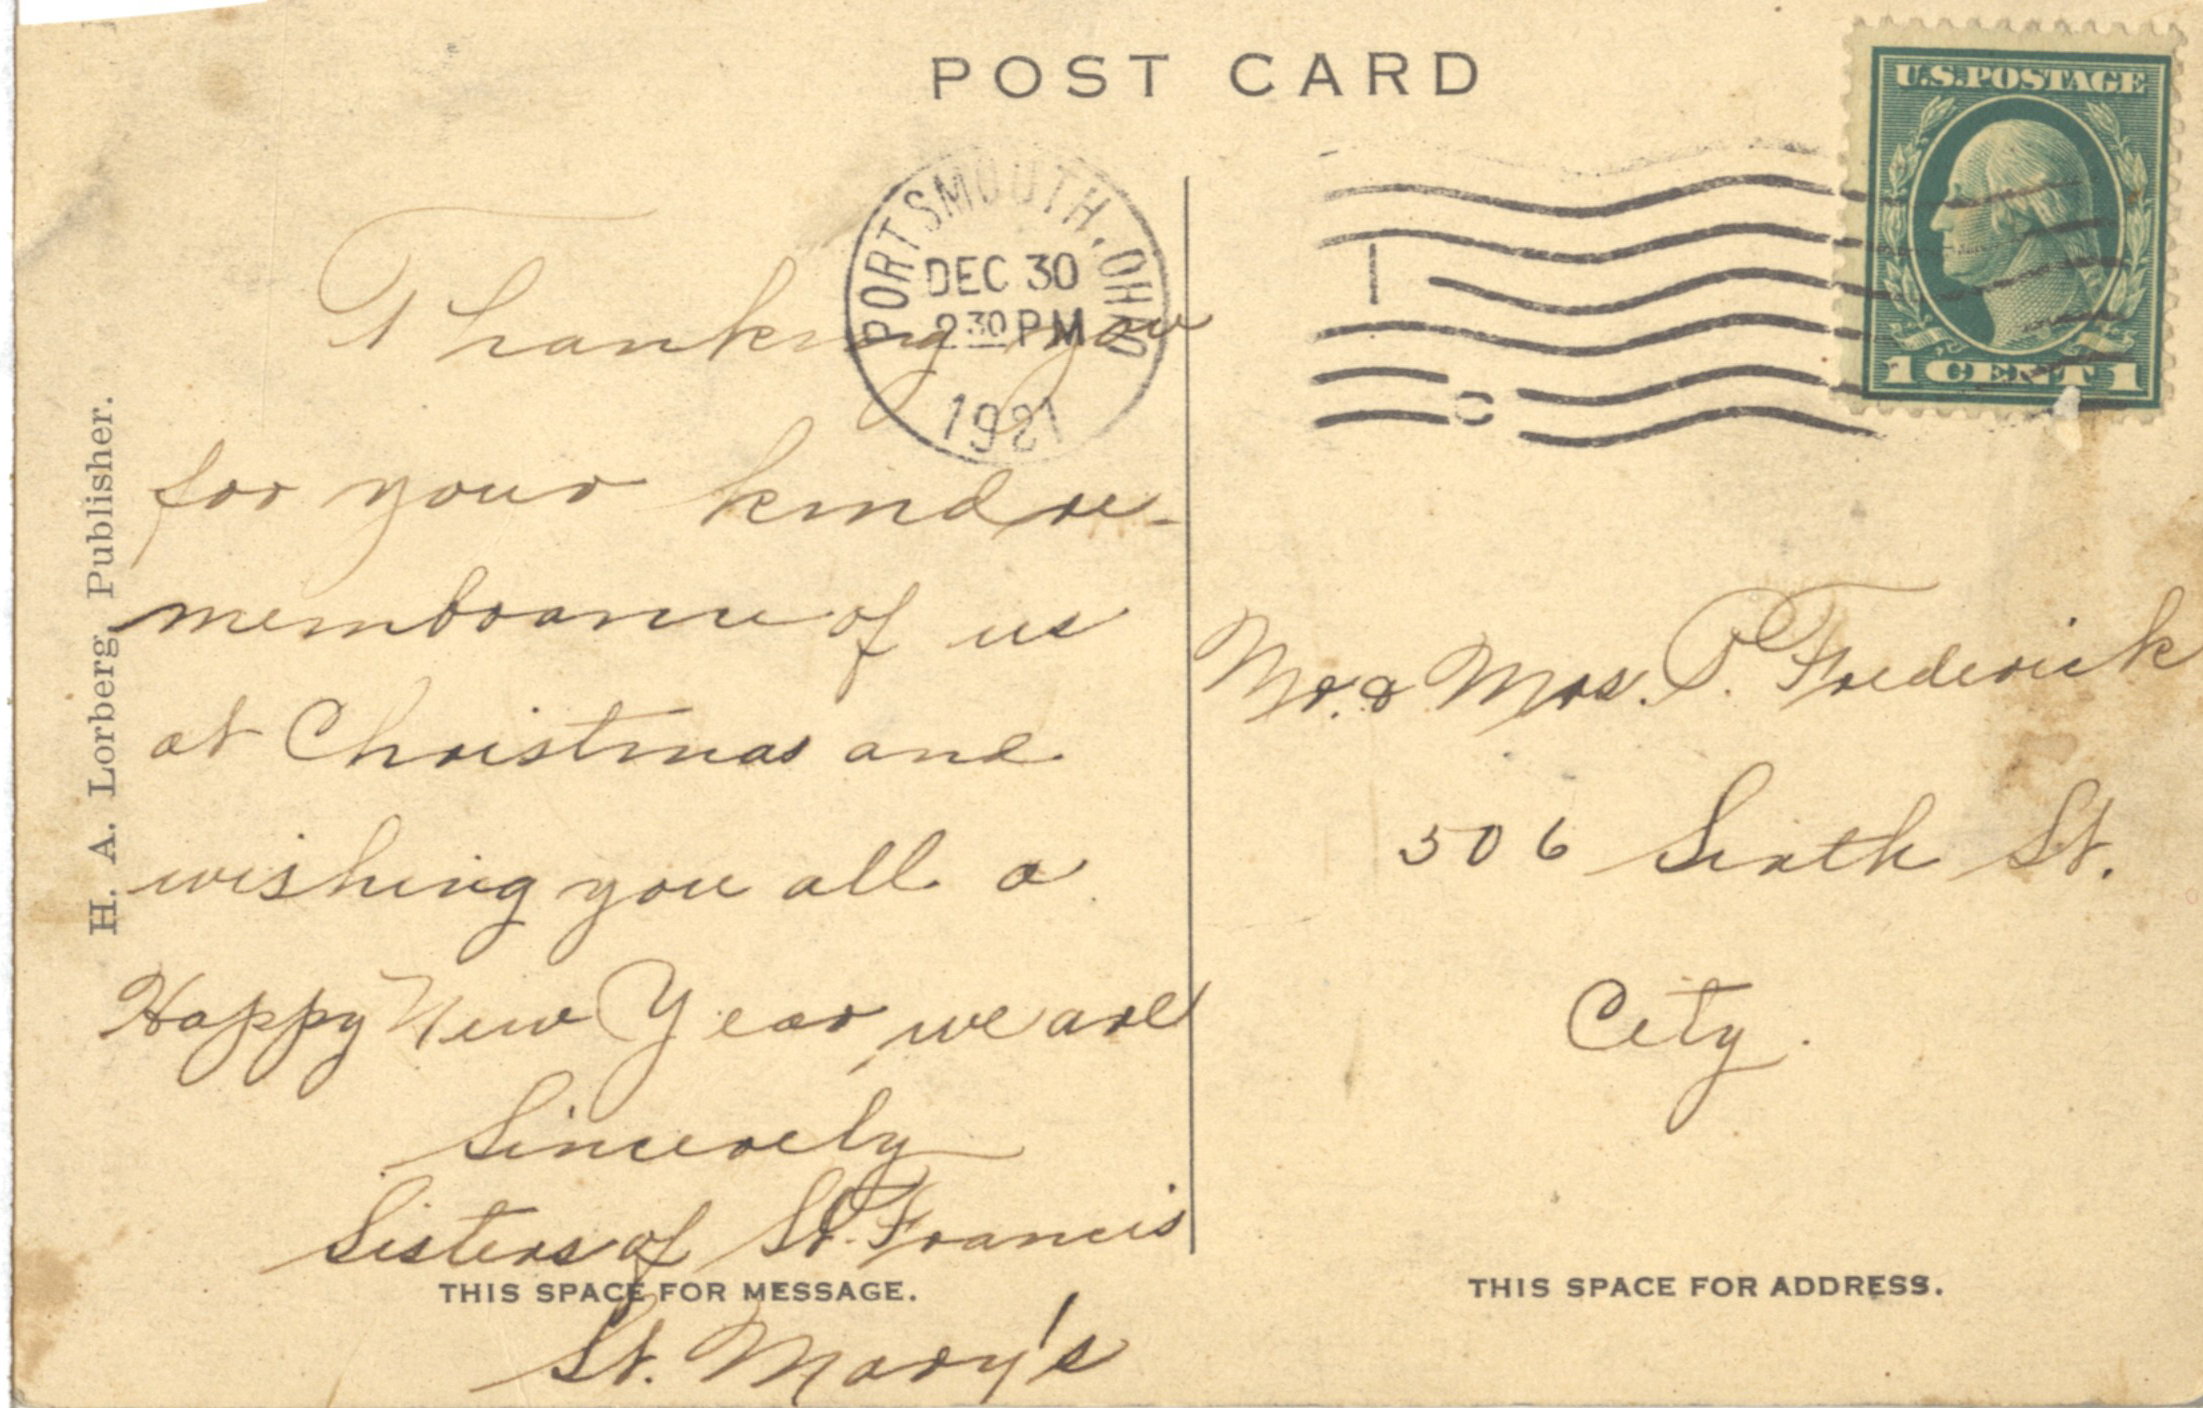 POST CARD
U.S. POSTAGE
1 CENT 1
PORTSMOUTH, OHIO
DEC 30
2 30 PM
1921
H. A. Lorberg, Publisher.
Thanking you
for your kind re-
membrance of us
at Christmas and
wishing you all a
Happy New Year, we are
Sincerely
Sisters of St. Francis
St. Mary's
THIS SPACE FOR MESSAGE.
Mr. & Mrs. P. Frederick
506 Sixth St.
City.
THIS SPACE FOR ADDRESS.